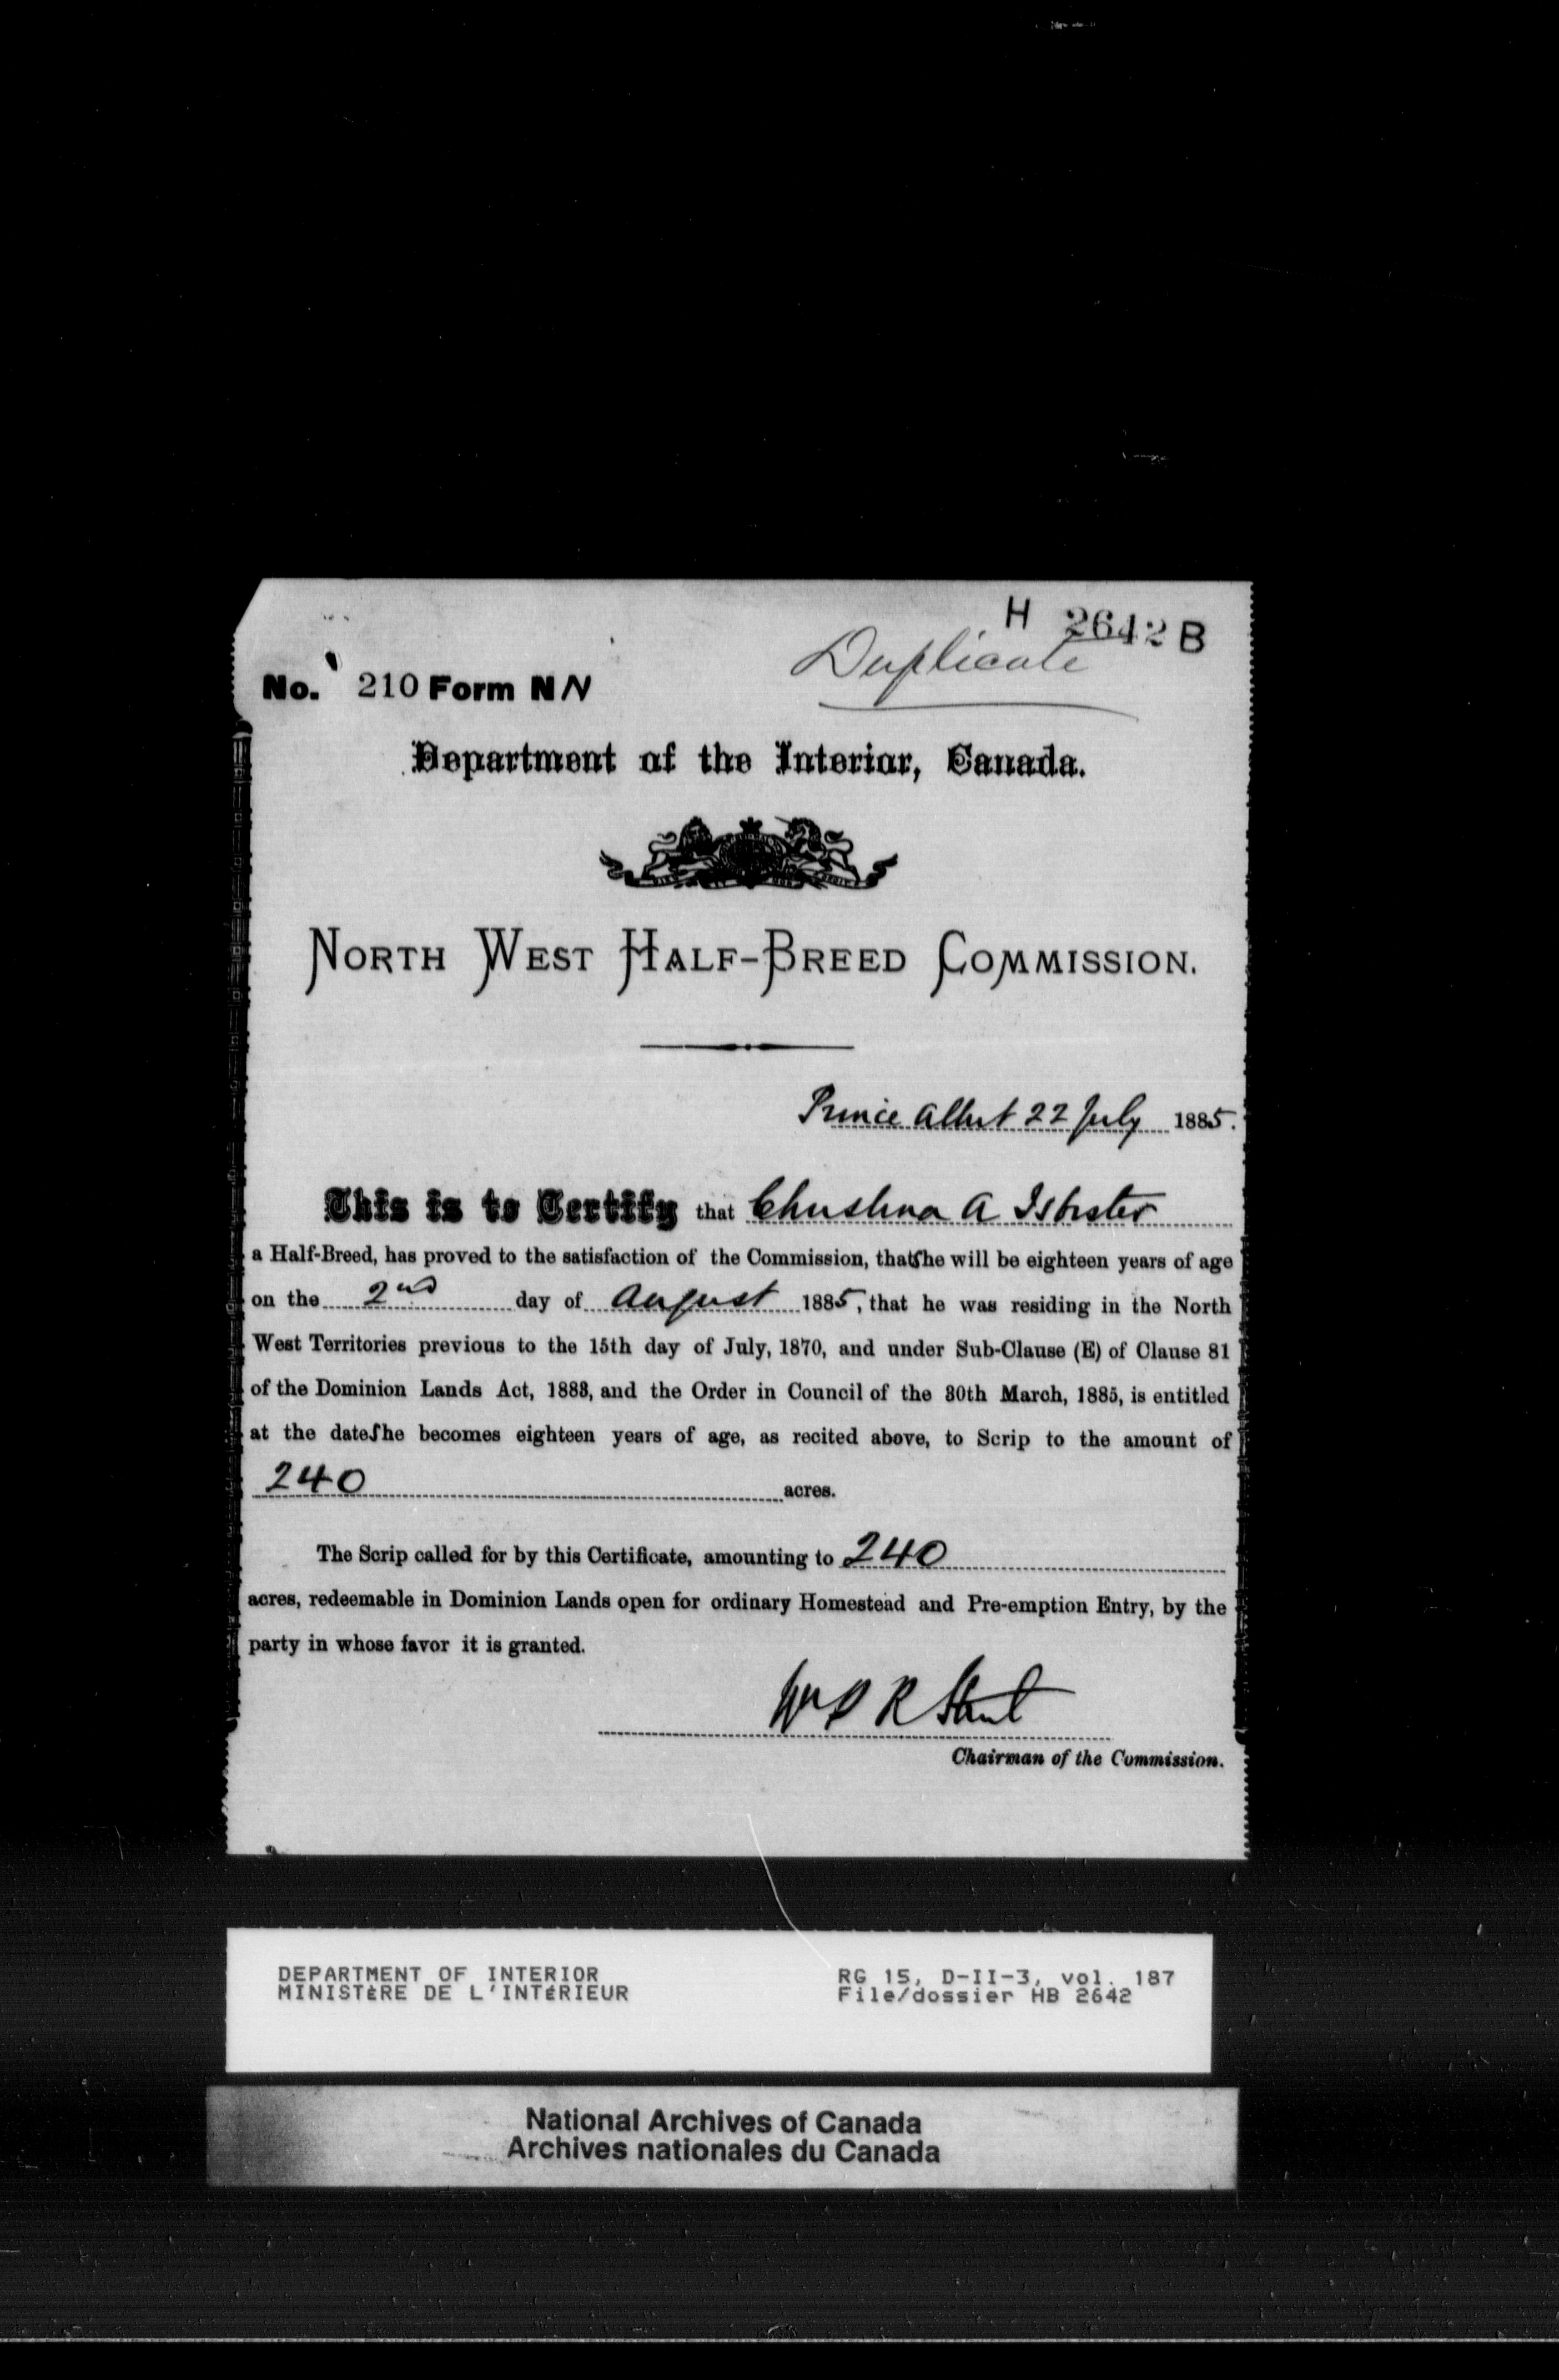 H 2642 B
Duplicate
No. 210 Form NN
Department of the Interior, Canada.
NORTH WEST HALF-BREED COMMISSION.
Prince Albert 22 July 1885.
This is to Certify that Christina A Isbister
a Half-Breed, has proved to the satisfaction of the Commission, that she will be eighteen years of age
on the 2nd day of August 1885, that he was residing in the North
West Territories previous to the 15th day of July, 1870, and under Sub-Clause (E) of Clause 81
of the Dominion Lands Act, 1883, and the Order in Council of the 30th March, 1885, is entitled
at the date she becomes eighteen years of age, as recited above, to Scrip to the amount of
240 acres.
The Scrip called for by this Certificate, amounting to 240
acres, redeemable in Dominion Lands open for ordinary Homestead and Pre-emption Entry, by the
party in whose favor it is granted.
Wm P R Street
Chairman of the Commission.
DEPARTMENT OF INTERIOR
MINISTÈRE DE L'INTÉRIEUR
RG 15, D-II-3, vol. 187
File/dossier HB 2642
National Archives of Canada
Archives nationales du Canada